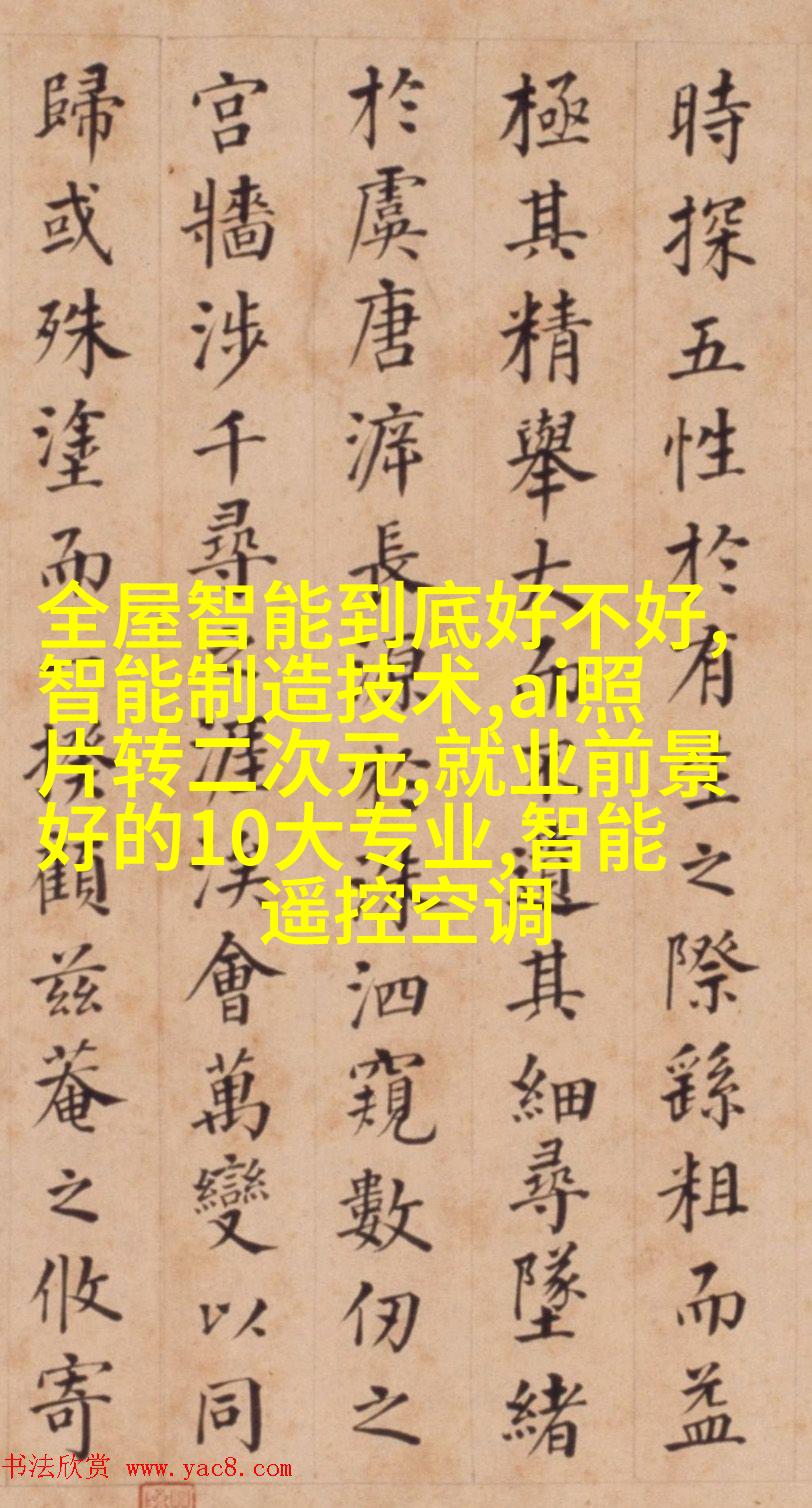 時探五性於有生之際繇粗而益
極其精舉大而中道其細尋墜緒
於虞唐泝長源於洙泗窺數仞之
宮牆涉千尋之涯涘會萬變以同
歸或殊塗而一揆顧茲菴之攸寄
全屋智能到底好不好,
智能制造技术,ai照
片转二次元,就业前景
好的10大专业,智能
遥控空调
书法欣赏 www.yac8.com